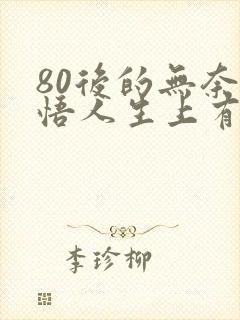 80後的無奈
悟人生上有
李珍柳